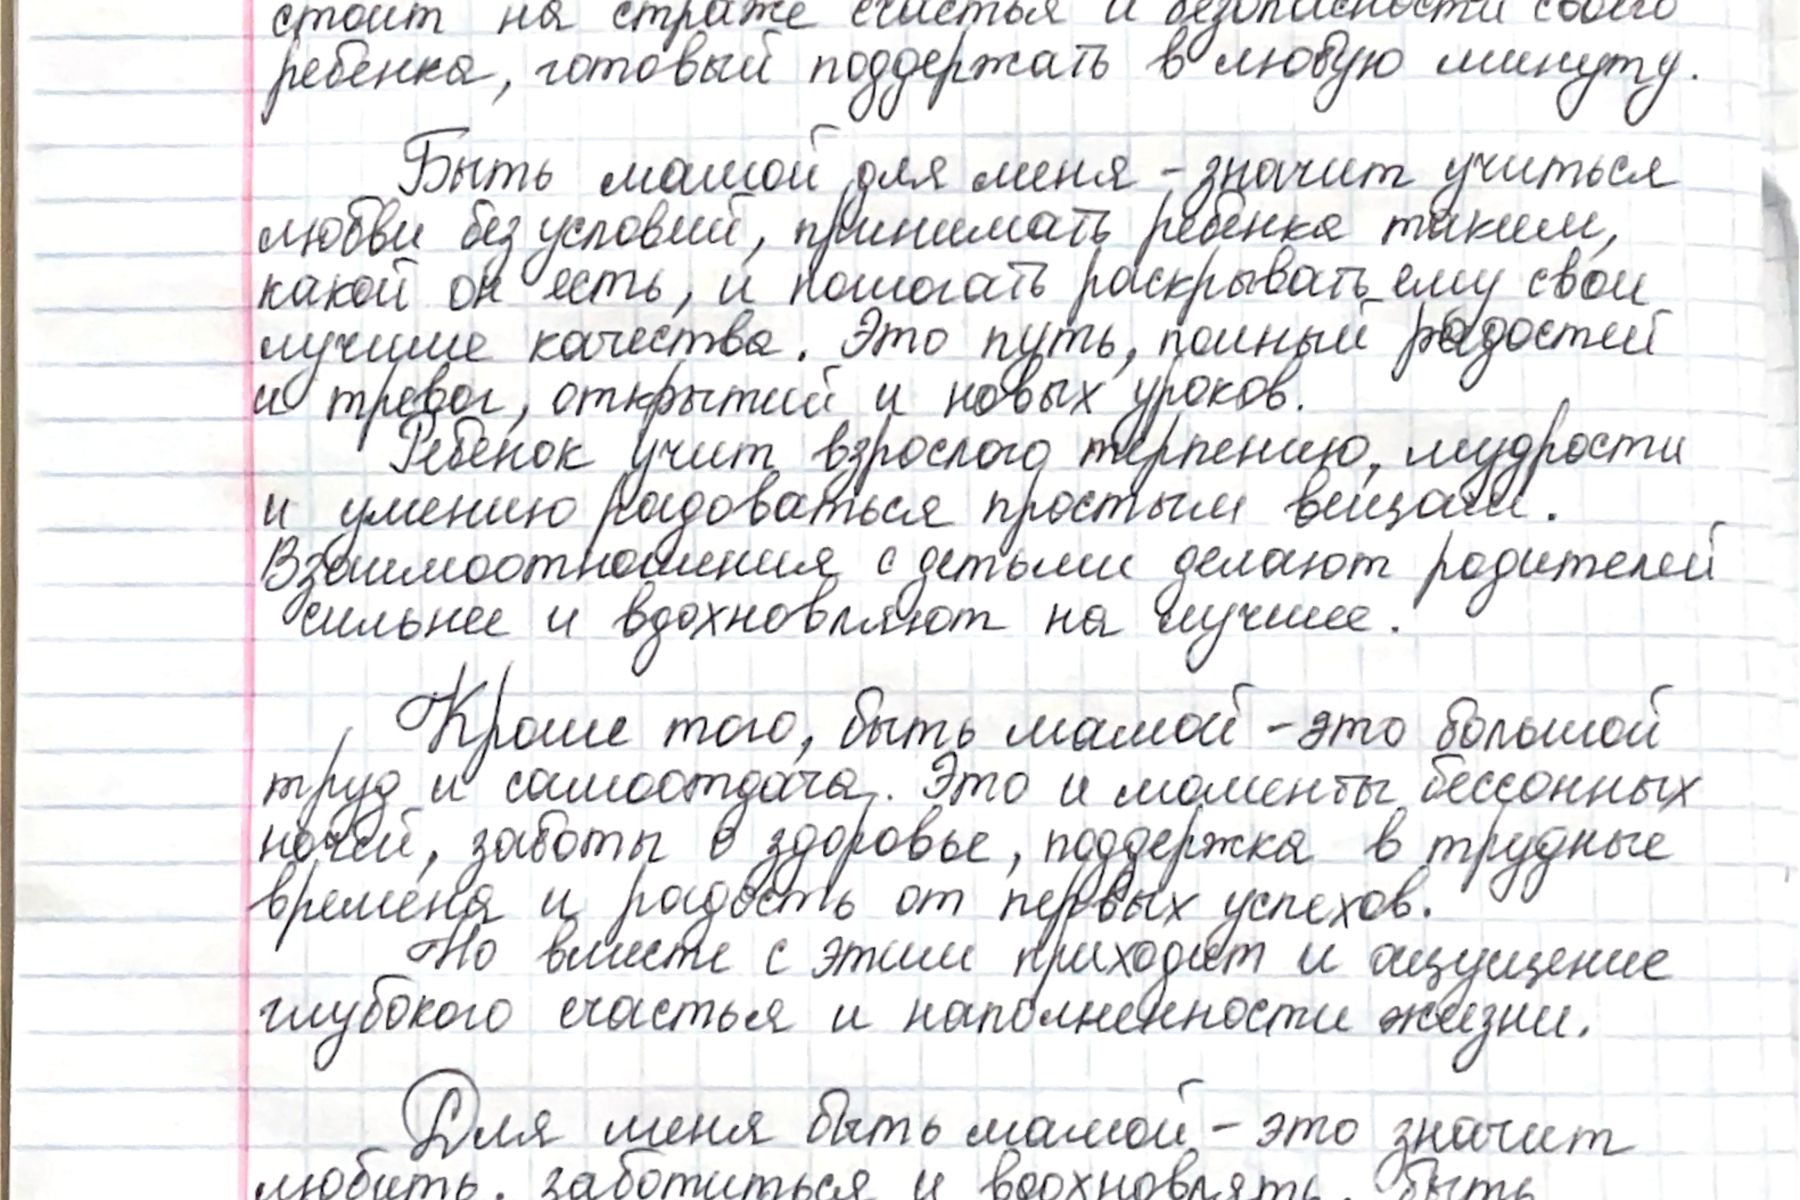 стоит на страже счастья и безопасности своего
ребенка, готовый поддержать в любую минуту.
Быть мамой для меня - значит учиться
любви без условий, принимать ребенка таким,
какой он есть, и помогать раскрывать ему свои
лучшие качества. Это путь, полный радостей
и тревог, открытий и новых уроков.
Ребенок учит взрослого терпению, мудрости
и умению радоваться простым вещам.
Взаимоотношения с детьми делают родителей
сильнее и вдохновляют на лучшее.
Кроме того, быть мамой - это большой
труд и самоотдача. Это и моменты бессонных
ночей, заботы о здоровье, поддержка в трудные
времена и радость от первых успехов.
Но вместе с этим приходит и ощущение
глубокого счастья и наполненности жизни.
Для меня быть мамой - это значит
любить, заботиться и вдохновлять, быть